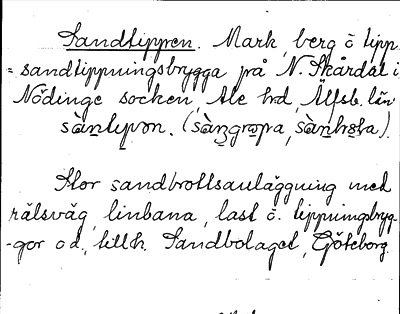 Sandtippen. Mark, berg o. tipp-
= sandtippningsbrygga på N. Skårdal i
Nödinge socken, Ale hd, Älfsb. län
sàn̲tɩpən. (sàn̲gro̲pa, sàn̲hə̲la).
Stor sandbrottsanläggning med
rälsväg, linbana, last o. tippningsbryg-
-gor o d., tillh. Sandbolaget, Göteborg.